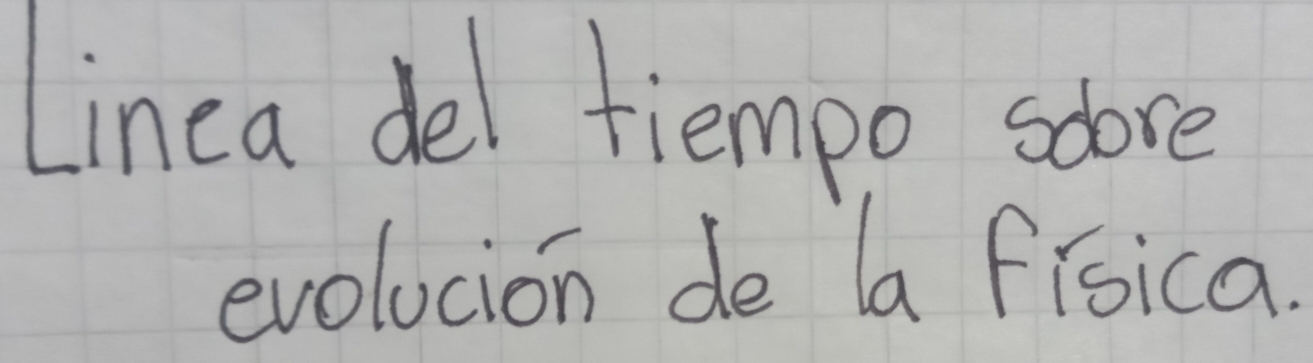 Linea del tiempo sobre
evolución de la física.